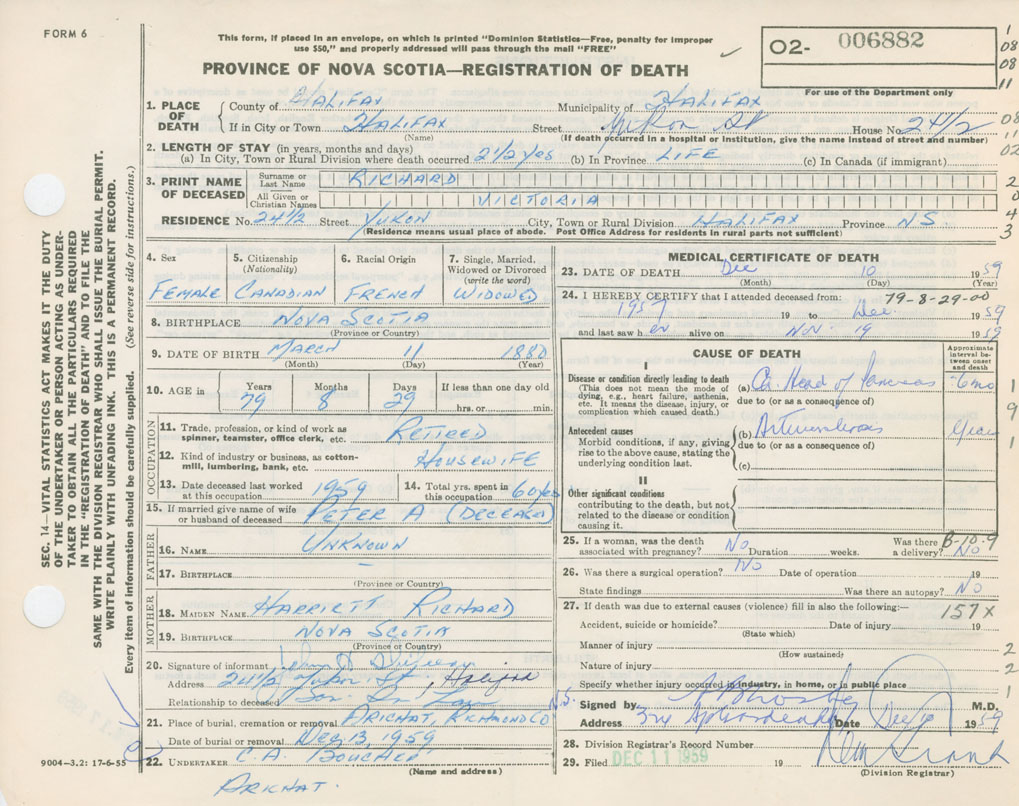 FORM 6
This form, if placed in an envelope, on which is printed "Dominion Statistics—Free, penalty for improper
use $50," and properly addressed will pass through the mail "FREE"
O2- 006882
PROVINCE OF NOVA SCOTIA—REGISTRATION OF DEATH
For use of the Department only
1. PLACE OF DEATH
County of HALIFAX Municipality of HALIFAX
If in City or Town HALIFAX Street St House No. 24 1/2
(Name) (If death occurred in a hospital or institution, give the name instead of street and number)
2. LENGTH OF STAY (in years, months and days)
(a) In City, Town or Rural Division where death occurred 2 1/2 yes (b) In Province LIFE (c) In Canada (if immigrant)
3. PRINT NAME OF DECEASED
Surname or Last Name RICHARD
All Given or Christian Names VICTORIA
RESIDENCE No. 24 1/2 Street YUKON City, Town or Rural Division HALIFAX Province NS
(Residence means usual place of abode. Post Office Address for residents in rural parts not sufficient)
4. Sex
FEMALE
5. Citizenship
(Nationality)
CANADIAN
6. Racial Origin
FRENCH
7. Single, Married,
Widowed or Divorced
(write the word)
WIDOWED
8. BIRTHPLACE NOVA SCOTIA
(Province or Country)
9. DATE OF BIRTH MARCH 11 1880
(Month) (Day) (Year)
10. AGE in
Years Months Days If less than one day old
79 8 29 hrs. or min.
OCCUPATION
11. Trade, profession, or kind of work as
spinner, teamster, office clerk, etc. RETIRED
12. Kind of industry or business, as cotton-
mill, lumbering, bank, etc. HOUSEWIFE
13. Date deceased last worked
at this occupation 1959
14. Total yrs. spent in
this occupation 60 yes
15. If married give name of wife
or husband of deceased PETER A (DECEASED)
FATHER
16. NAME UNKNOWN
17. BIRTHPLACE —
(Province or Country)
MOTHER
18. MAIDEN NAME HARRIETT RICHARD
19. BIRTHPLACE NOVA SCOTIA
(Province or Country)
20. Signature of informant
Address 24 1/2 Yukon St, Halifax
Relationship to deceased
21. Place of burial, cremation or removal ARICHAT, RICHMOND CO N.S.
Date of burial or removal Dec, 13, 1959
22. UNDERTAKER C.A. BOUCHER
(Name and address)
ARICHAT.
9004-3.2: 17-6-55
SEC. 14—VITAL STATISTICS ACT MAKES IT THE DUTY
OF THE UNDERTAKER OR PERSON ACTING AS UNDER-
TAKER TO OBTAIN ALL THE PARTICULARS REQUIRED
IN THE "REGISTRATION OF DEATH" AND TO FILE THE
SAME WITH THE DIVISION REGISTRAR WHO SHALL ISSUE THE BURIAL PERMIT.
WRITE PLAINLY WITH UNFADING INK. THIS IS A PERMANENT RECORD.
Every item of information should be carefully supplied. (See reverse side for instructions.)
MEDICAL CERTIFICATE OF DEATH
23. DATE OF DEATH Dec 10 1959
(Month) (Day) (Year)
24. I HEREBY CERTIFY that I attended deceased from: 79-8-29-00
1957 19 to Dec. 1959
and last saw her alive on Nov. 19 1959
CAUSE OF DEATH
Approximate interval between onset and death
I
Disease or condition directly leading to death
(This does not mean the mode of
dying, e.g., heart failure, asthenia,
etc. It means the disease, injury, or
complication which caused death.)
(a) Ca. Head of Pancreas 6 mo
due to (or as a consequence of)
Antecedent causes
Morbid conditions, if any, giving
rise to the above cause, stating the
underlying condition last.
(b) Arteriosclerosis years
due to (or as a consequence of)
(c)
II
Other significant conditions
contributing to the death, but not
related to the disease or condition
causing it.
25. If a woman, was the death
associated with pregnancy? No Duration weeks. Was there a delivery? No
B-10.9
26. Was there a surgical operation? No Date of operation 19
State findings Was there an autopsy? No
27. If death was due to external causes (violence) fill in also the following:—
157X
Accident, suicide or homicide? Date of injury 19
(State which)
Manner of injury
(How sustained)
Nature of injury
Specify whether injury occurred in industry, in home, or in public place
Signed by M.D.
Address Date Dec 1959
28. Division Registrar's Record Number
29. Filed DEC 11 1959 19
(Division Registrar)
1
08
08
11
08
11
02
2
0
4
3
1
9
1
2
2
1